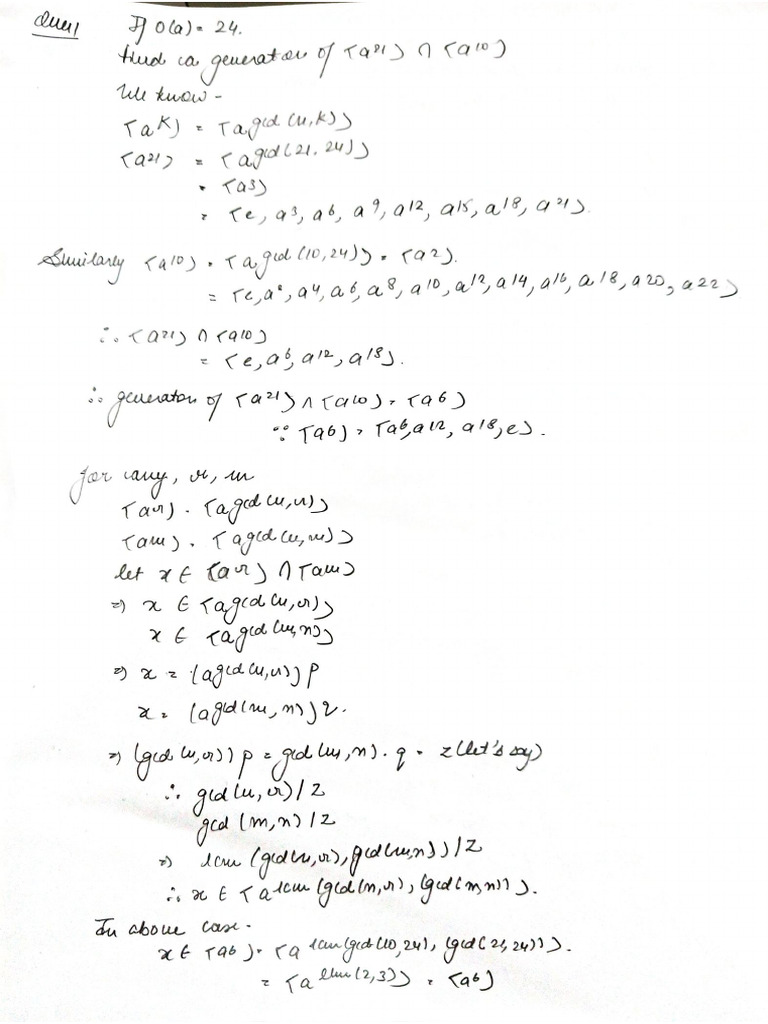 Ques1 If O(a) = 24.
find a generator of <a²¹> ∩ <a¹⁰>
We know -
<aᵏ> = <a^gcd(n,k)>
<a²¹> = <a^gcd(21,24)>
= <a³>
= <e, a³, a⁶, a⁹, a¹², a¹⁵, a¹⁸, a²¹>.
Similarly <a¹⁰> = <a^gcd(10,24)> = <a²>.
= <e, a², a⁴, a⁶, a⁸, a¹⁰, a¹², a¹⁴, a¹⁶, a¹⁸, a²⁰, a²²>
∴ <a²¹> ∩ <a¹⁰>
= <e, a⁶, a¹², a¹⁸>.
∴ generator of <a²¹> ∩ <a¹⁰> = <a⁶>
∵ <a⁶> = <a⁶, a¹², a¹⁸, e>.
for any, r, m
<aʳ> = <a^gcd(n,r)>
<aᵐ> = <a^gcd(n,m)>
let x ∈ <aʳ> ∩ <aᵐ>
⇒ x ∈ <a^gcd(n,r)>
x ∈ <a^gcd(m,n)>
⇒ x = (a^gcd(n,r))p
x = (a^gcd(m,n))q.
⇒ (gcd(n,r))p = gcd(m,n).q = z (let's say)
∴ gcd(n,r)/z
gcd(m,n)/z
⇒ lcm(gcd(n,r), gcd(m,n))/z
∴ x ∈ <a^lcm(gcd(n,r), (gcd(m,n))>.
In above case -
x ∈ <a⁶> = <a^lcm(gcd(10,24), (gcd(21,24))>.
= <a^lcm(2,3)> = <a⁶>